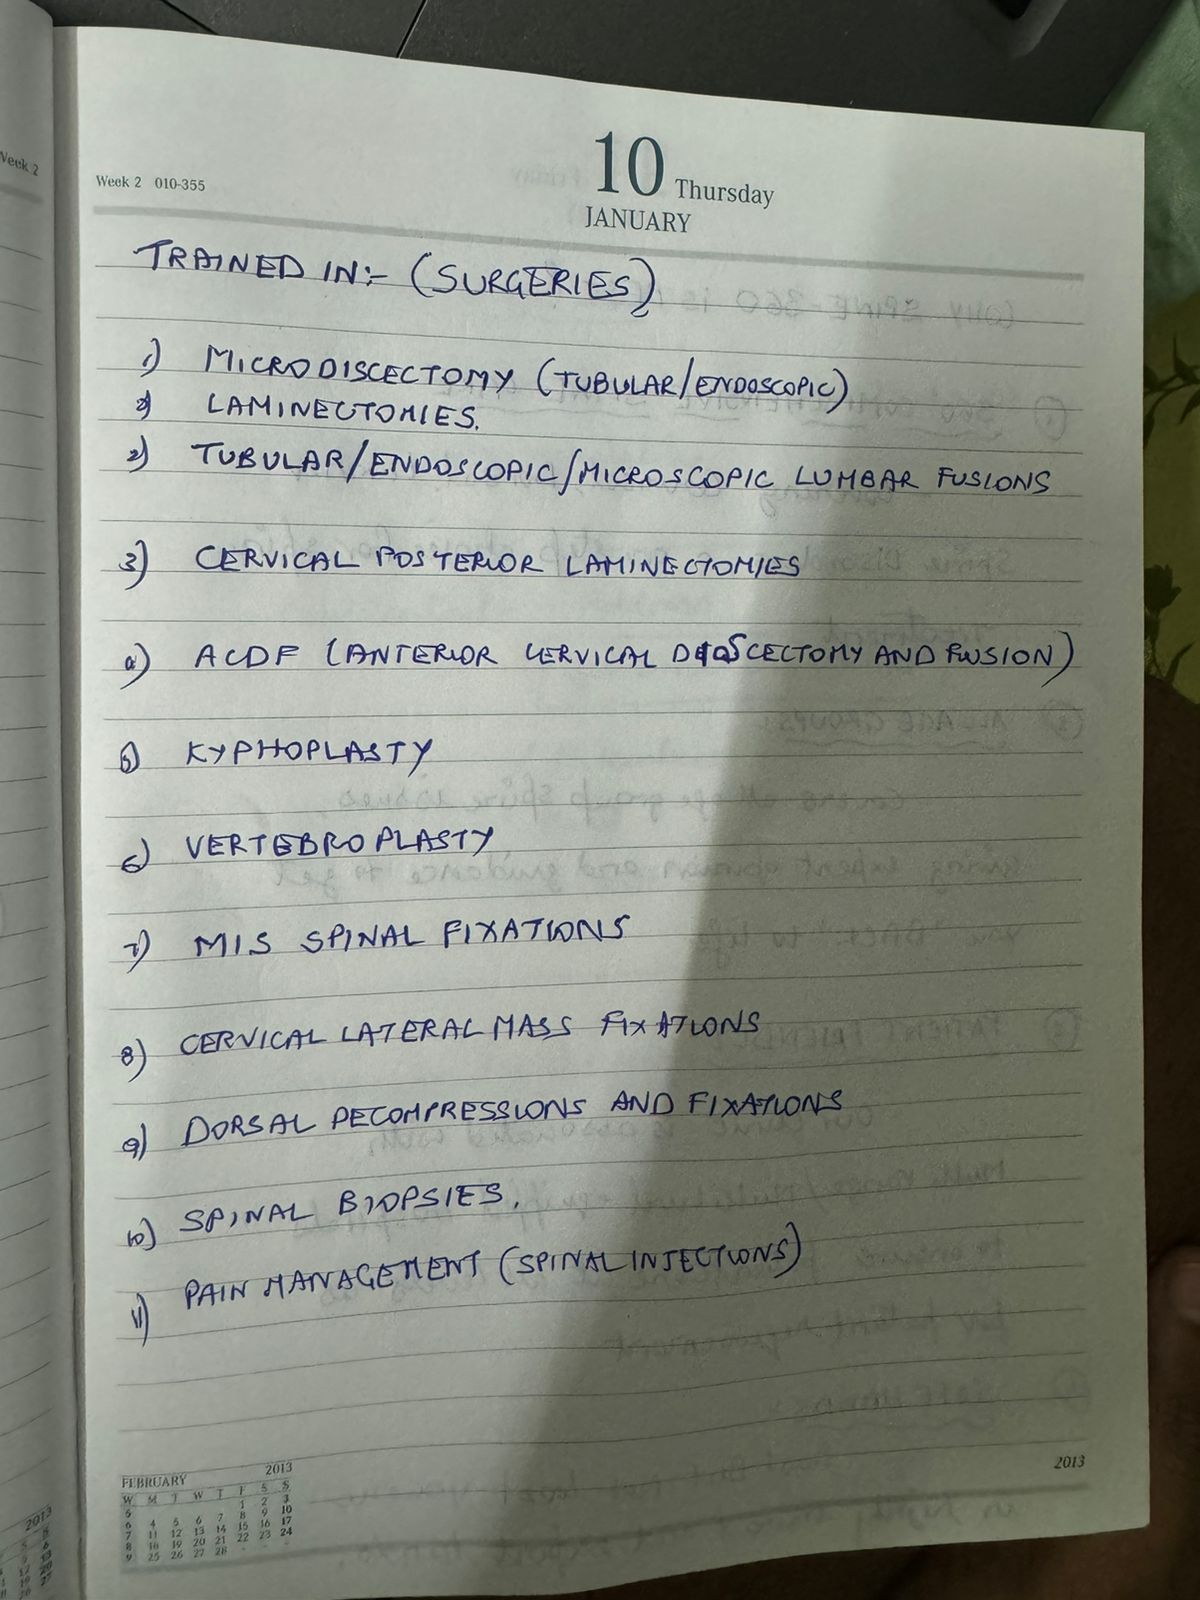 Week 2
Week 2 010-355
10 Thursday
JANUARY
TRAINED IN:- (SURGERIES)
1) MICRODISCECTOMY (TUBULAR/ENDOSCOPIC)
2) LAMINECTOMIES.
2) TUBULAR/ENDOSCOPIC/MICROSCOPIC LUMBAR FUSIONS
3) CERVICAL POSTERIOR LAMINECTOMIES
4) ACDF (ANTERIOR CERVICAL DISCECTOMY AND FUSION)
5) KYPHOPLASTY
6) VERTEBROPLASTY
7) MIS SPINAL FIXATIONS
8) CERVICAL LATERAL MASS FIXATIONS
9) DORSAL DECOMPRESSIONS AND FIXATIONS
10) SPINAL BIOPSIES.
11) PAIN MANAGEMENT (SPINAL INJECTIONS)
2013
FEBRUARY 2013
W M T W T F S S
5 1 2 3
6 4 5 6 7 8 9 10
7 11 12 13 14 15 16 17
8 18 19 20 21 22 23 24
9 25 26 27 28 - - -
2013